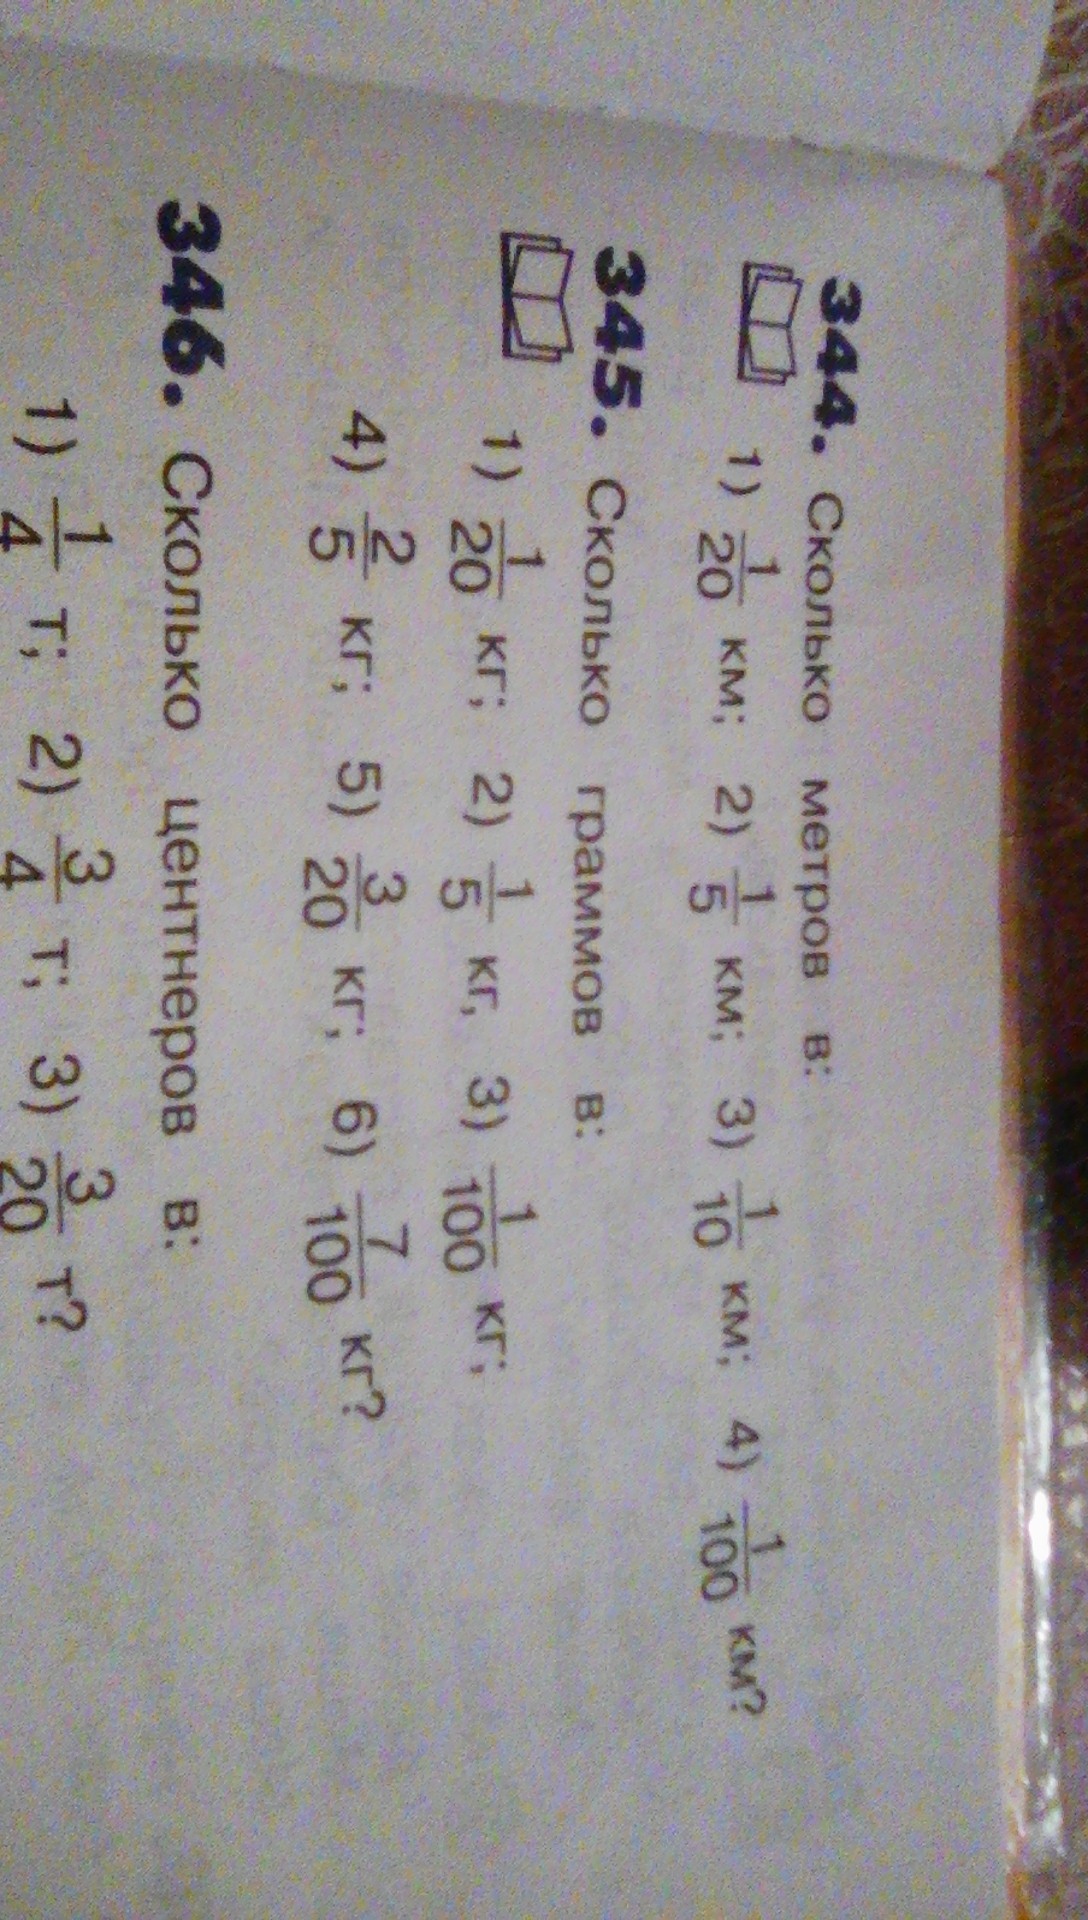 344. Сколько метров в:
1) 1/20 км; 2) 1/5 км; 3) 1/10 км; 4) 1/100 км?
345. Сколько граммов в:
1) 1/20 кг; 2) 1/5 кг, 3) 1/100 кг;
4) 2/5 кг; 5) 3/20 кг; 6) 7/100 кг?
346. Сколько центнеров в:
1) 1/4 т; 2) 3/4 т; 3) 3/20 т?